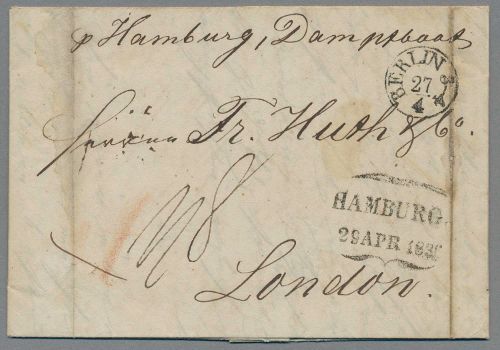 p Hamburg, Dampfboot
BERLIN
27
4
Herren Fr. Huth & Co.
HAMBURG.
29 APR 183
London.